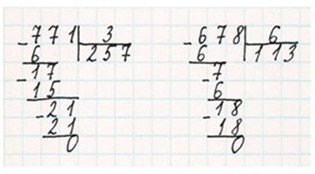 771 3
6 257
17
15
21
21
0
678 6
6 113
7
6
18
18
0